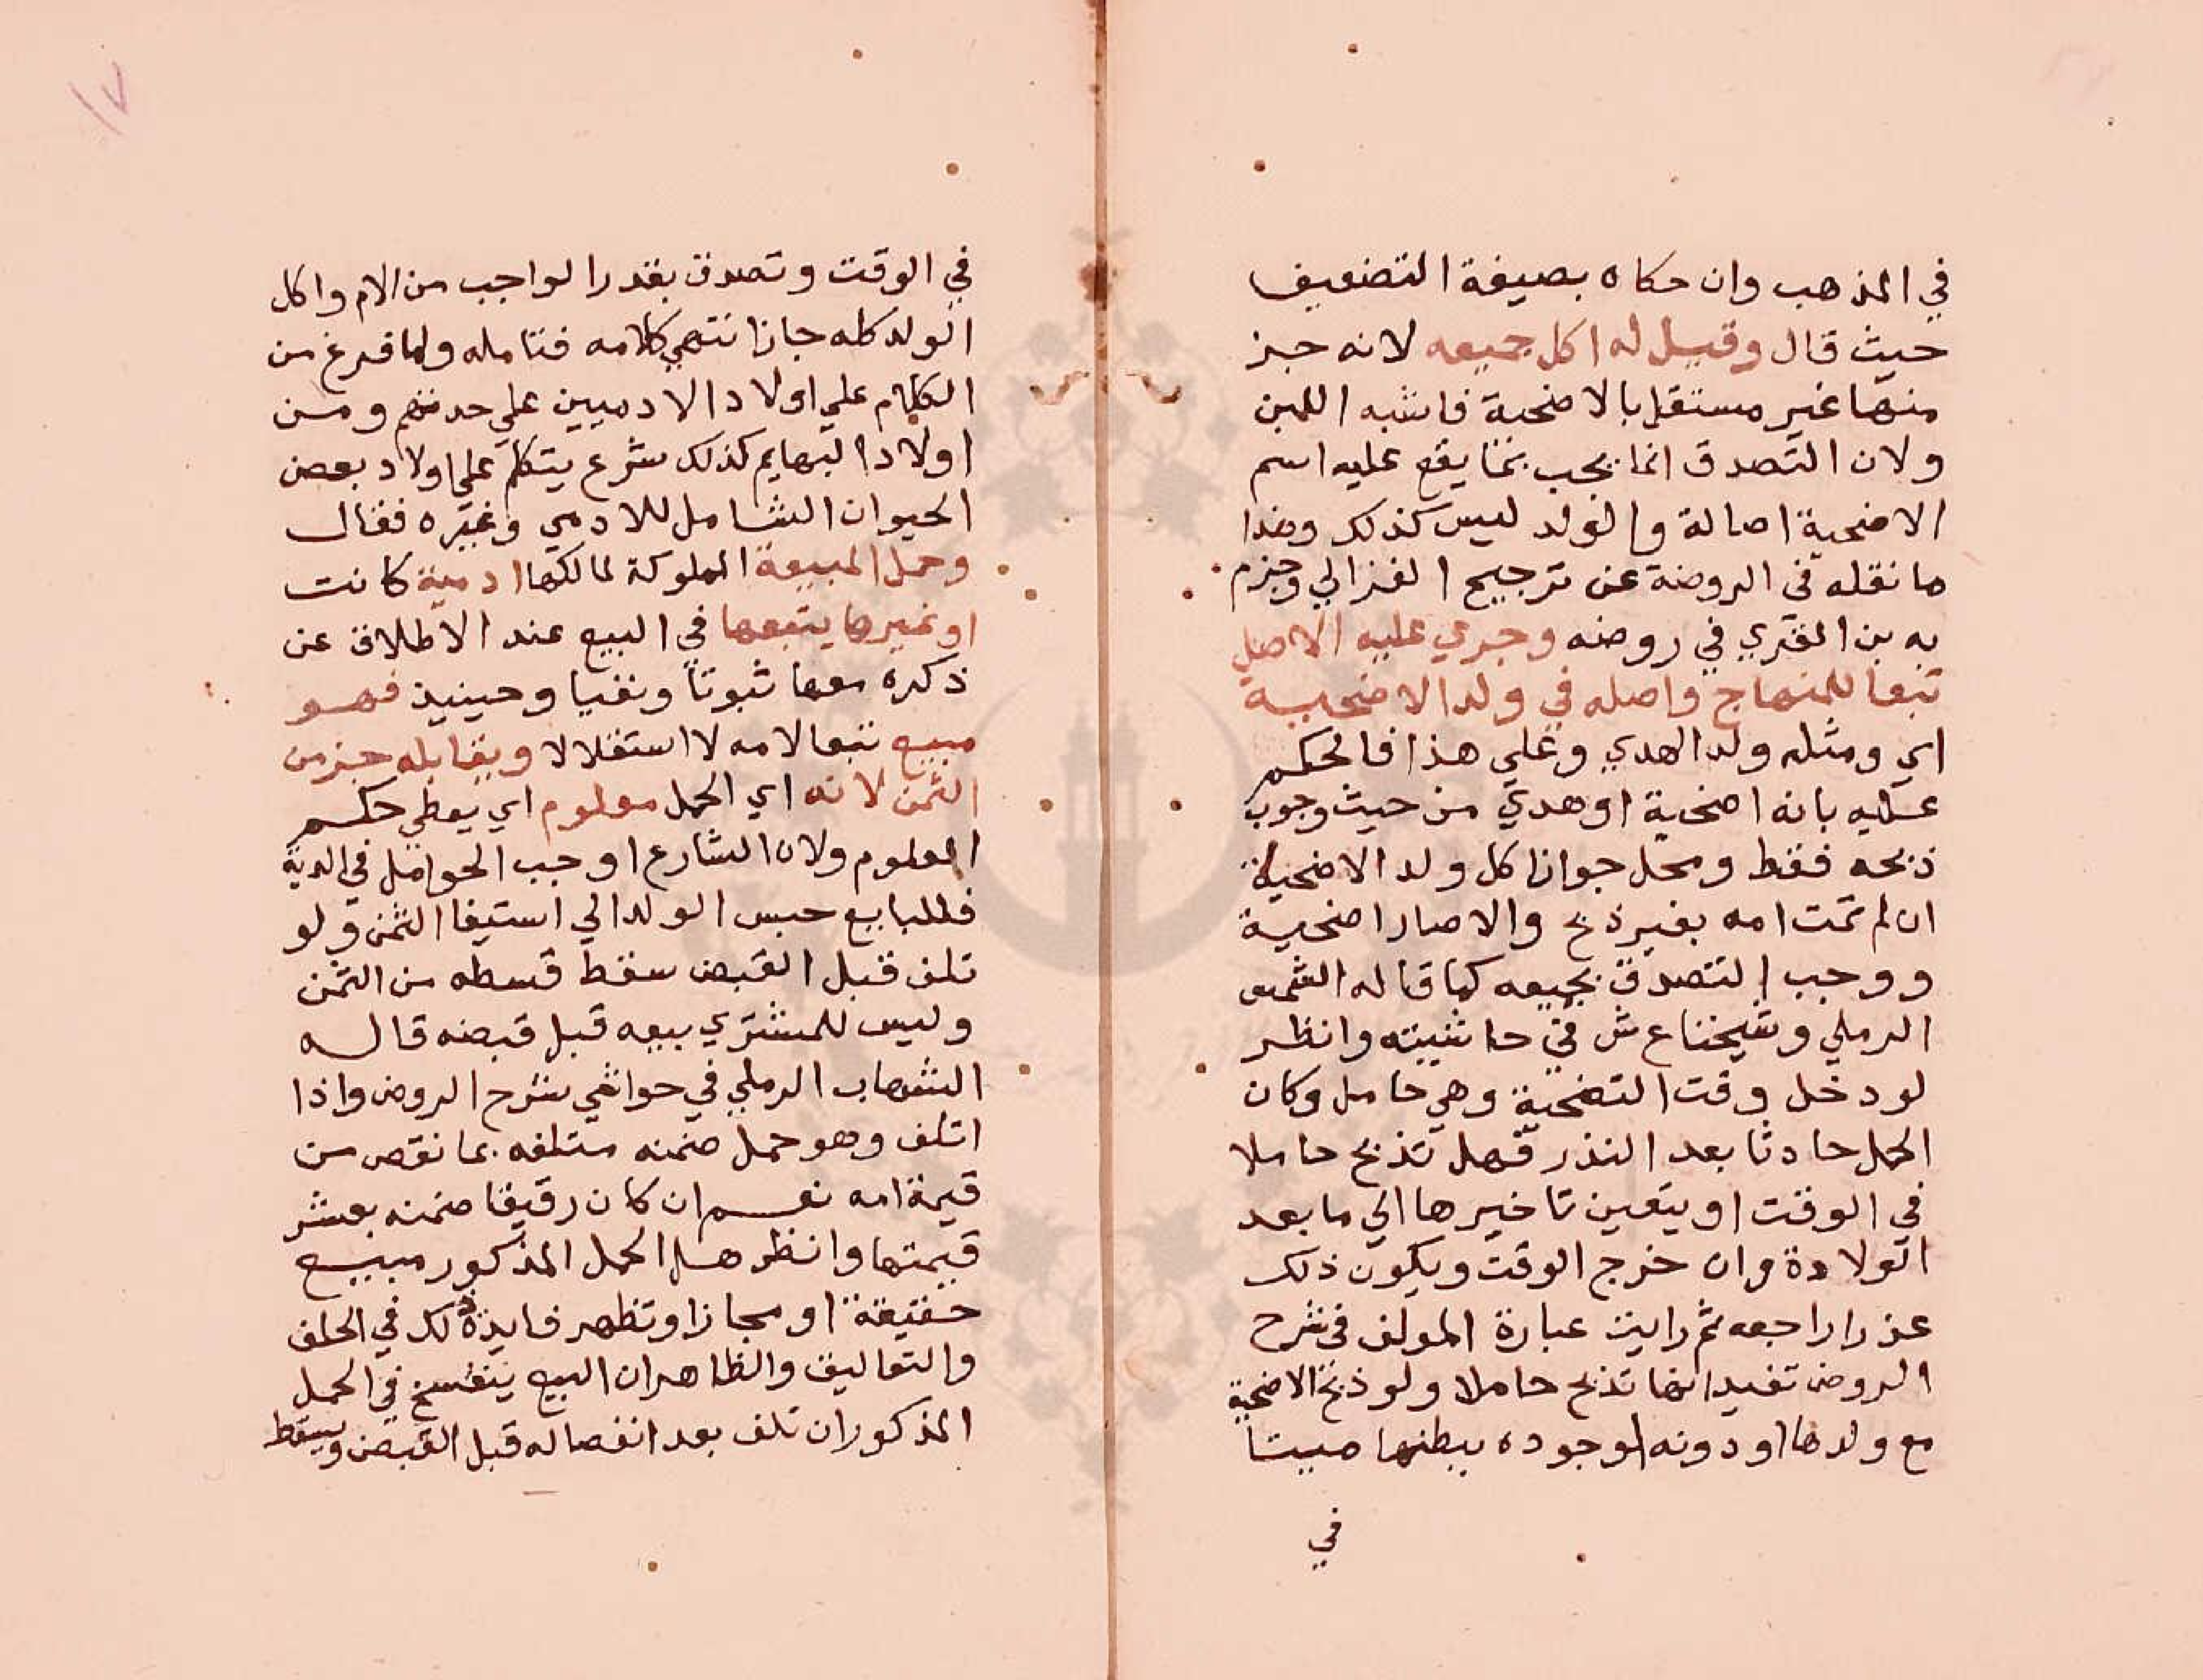 في المذهب وان حكاه بصيغة التضعيف
حيث قال وقيل له اكل جميعه لانه جز
منها غير مستقل بالاضحية فاشبه اللبن
ولان التصدق انما يجب بما يقع عليه اسم
الاضحية اصالة والولد ليس كذلك وهذا
ما نقله في الروضة عن ترجيح الغزالي وجزم
به بن المقري في روضه وجري عليه الاصل
تبعا للمنهاج واصله في ولد الاضحية
اي ومثله ولد الهدي وعلي هذا فالحكم
عليه بانه اضحية او هدي من حيث وجوب
ذبحه فقط ومحل جواز اكل ولد الاضحية
ان لم تمت امه بغير ذبح والا صار اضحية
ووجب التصدق بجميعه كما قاله الشمس
الرملي وشيخنا ع ش في حاشيته وانظر
لو دخل وقت التضحية وهي حامل وكان
الحمل حادثا بعد النذر فهل تذبح حاملا
في الوقت او يتعين تاخيرها الي ما بعد
الولادة وان خرج الوقت ويكون ذلك
عذرا راجعه ثم رايت عبارة المولف في شرح
الروض تفيد انها تذبح حاملا ولو ذبح الاضحية
مع ولدها او دونه لوجوده ببطنها ميتا
في
١٧
في الوقت وتصدق بقدر الواجب من الام واكل
الولد كله جاز انتهي كلامه فتامله ولما فرغ من
الكلام علي اولاد الادميين علي حدتهم ومن
اولاد البهايم كذلك شرع يتكلم علي اولاد بعض
الحيوان الشامل للادمي وغيره فقال
وحمل المبيعة المملوكة لمالكها ادمية كانت
او غيرها يتبعها في البيع عند الاطلاق عن
ذكره معها ثبوتا ونفيا وحينيذ فهو
مبيع تبعا لامه لا استقلالا ويقابله جز من
الثمن لانه اي الحمل معلوم اي يعطي حكم
المعلوم ولان الشارع اوجب الحوامل في الدية
فللبايع حبس الولد الي استيفا الثمن ولو
تلف قبل القبض سقط قسطه من الثمن
وليس للمشتري بيعه قبل قبضه قاله
الشهاب الرملي في حواشي شرح الروض واذا
اتلف وهو حمل ضمنه متلفه بما نقص من
قيمة امه نعم ان كان رقيقا ضمنه بعشر
قيمتها وانظر هل الحمل المذكور مبيع
حقيقة او مجازا وتظهر فايدة ذلك في الحلف
والتعاليق والظاهر ان البيع ينفسخ في الحمل
المذكور ان تلف بعد انفصاله قبل القبض ويسقط